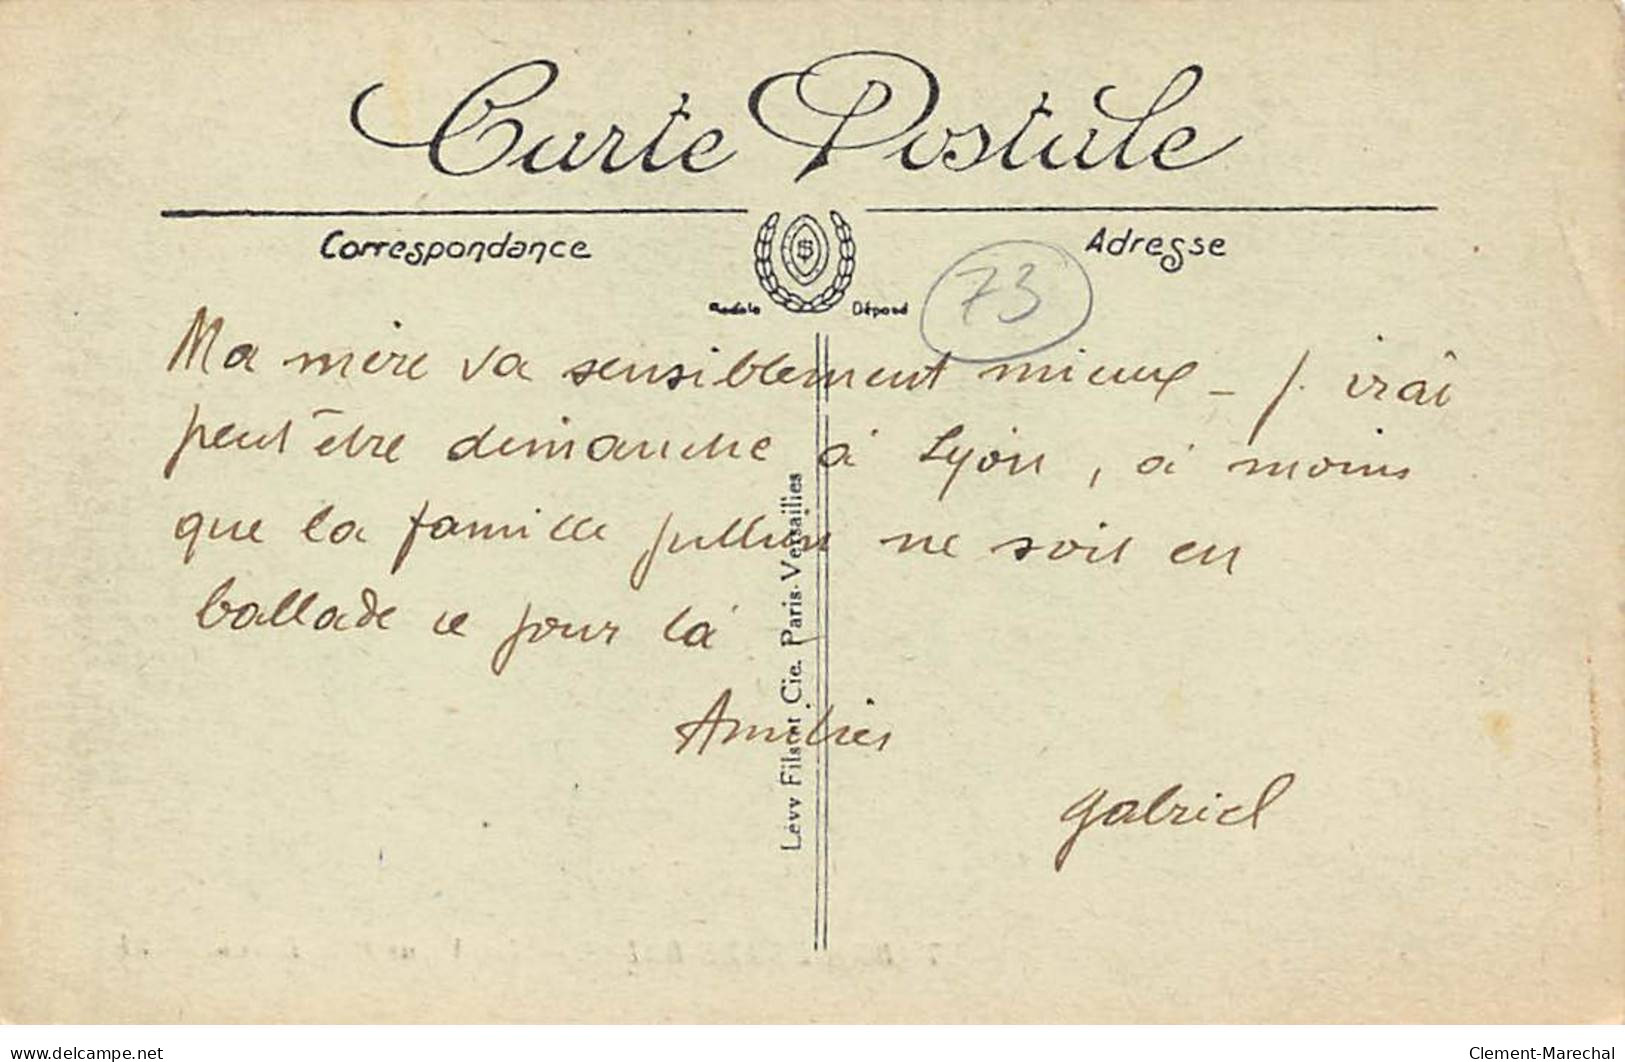 Carte Postale
Correspondance
Adresse
Modèle Déposé
73
Ma mère va sensiblement mieux - j'irai
peut être dimanche à Lyon, à moins
que la famille Jullien ne soit en
ballade ce jour là
Amitiés
Gabriel
Lévy Fils et Cie. Paris-Versailles
www.delcampe.net
Clement-Marechal